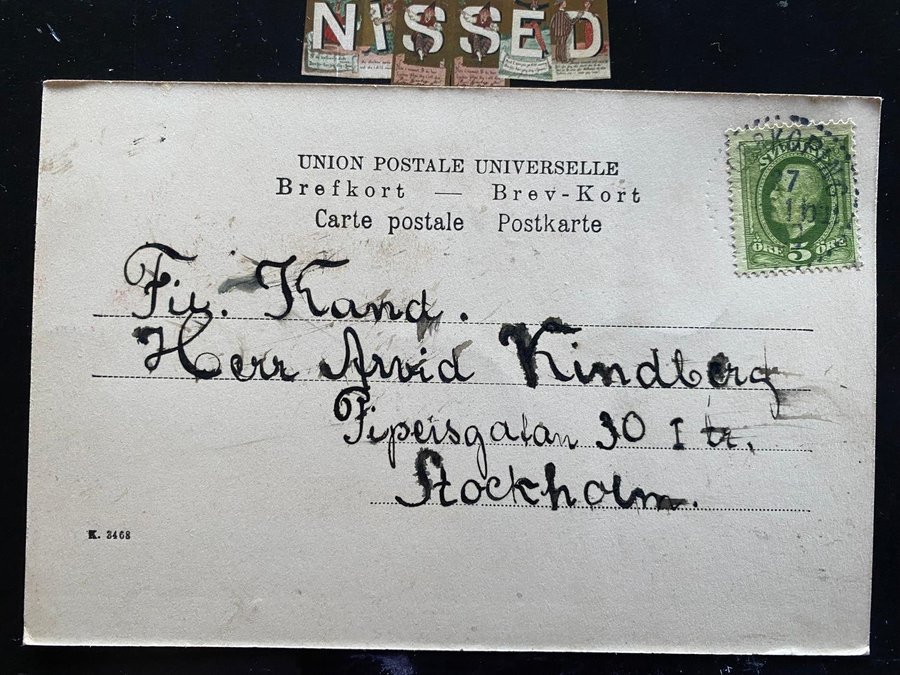 NISSED
UNION POSTALE UNIVERSELLE
Brefkort — Brev-Kort
Carte postale Postkarte
SVERIGE
7
ÖRE 5 ÖRE
Fil. Kand.
Herr Arvid Kindberg
30 I tr.
Stockholm.
K. 3468